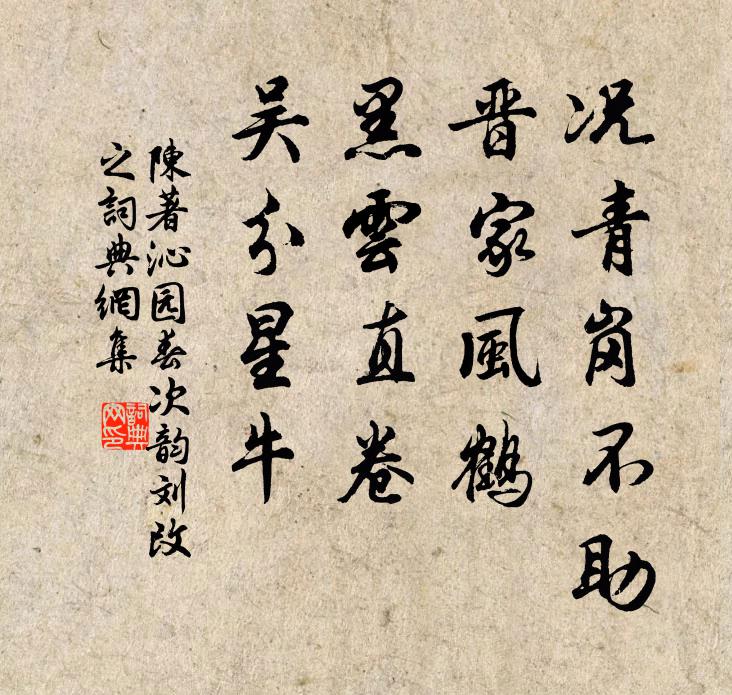 况青岗不助
晋家風鶴
黑雲直卷
吴分星牛
陳著沁园春次韵刘改
之詞典網集
詞典網印